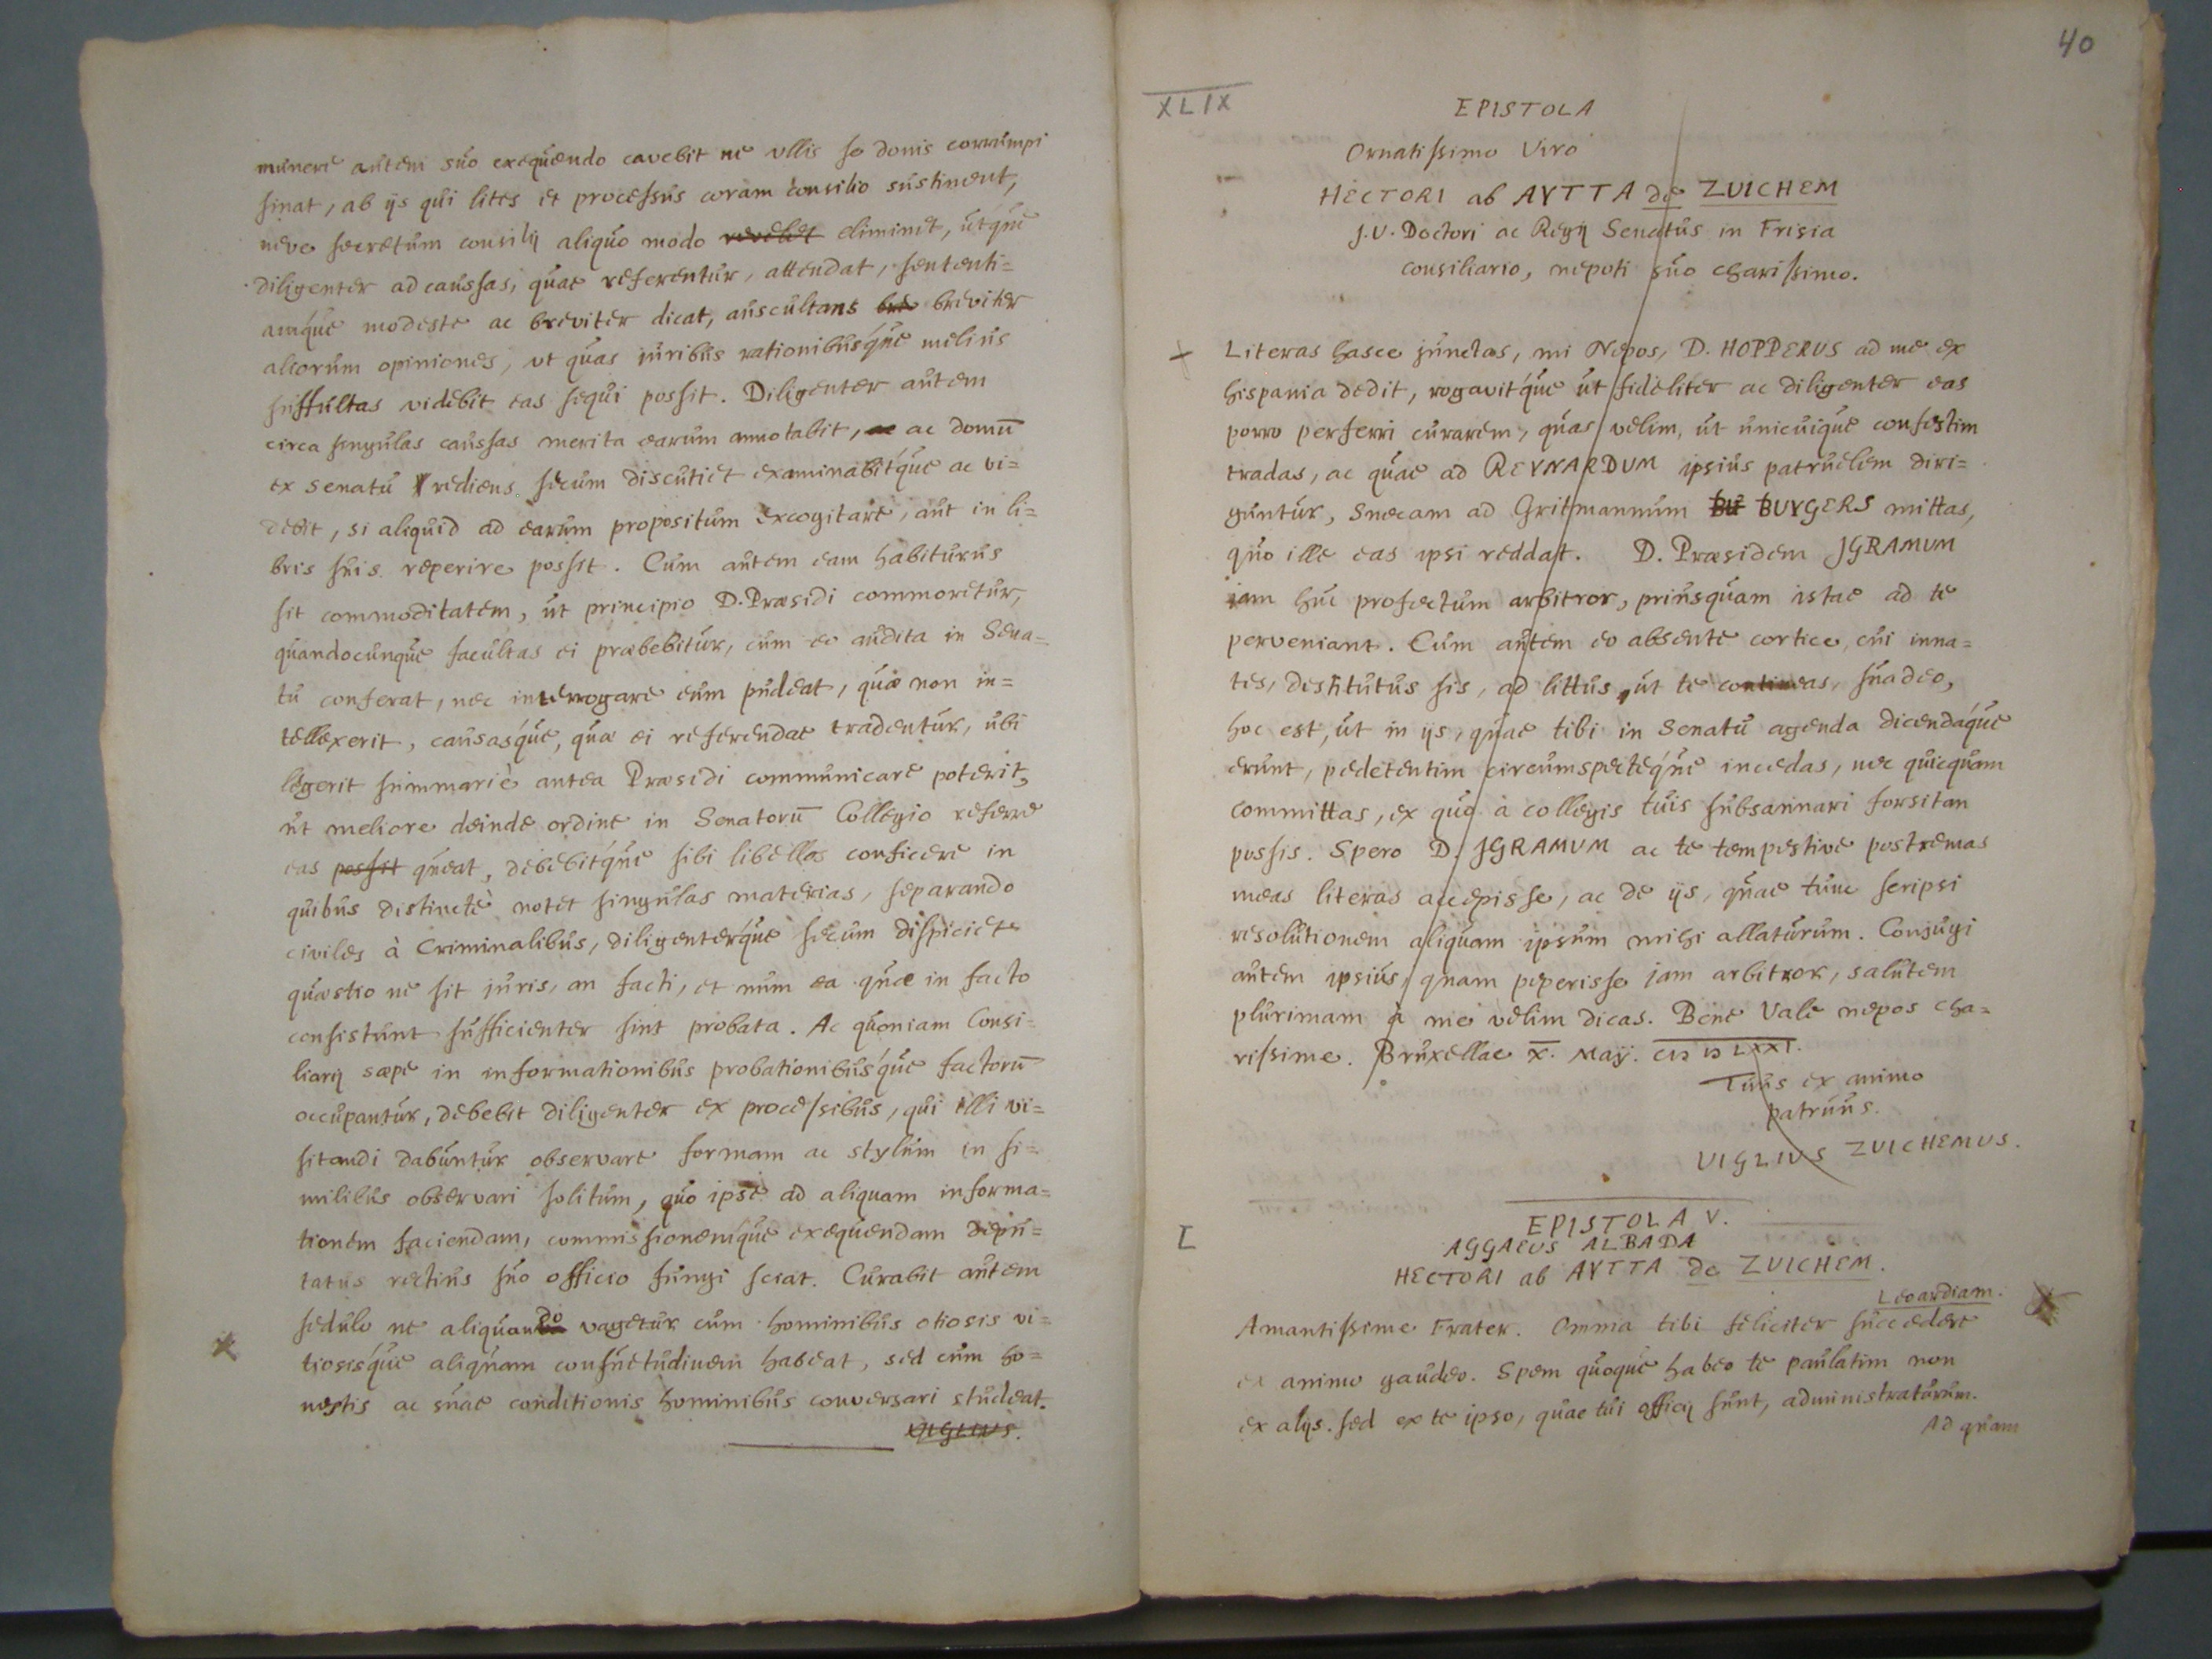 munere autem suo exequendo cavebit ne ullis se donis corrumpi
sinat, ab ijs qui lites et processus coram consilio sustinent,
neve secretum consilij aliquo modo revelet eliminet, utque
diligenter ad caussas, quae referentur, attendat, sententi=
amque modeste ac breviter dicat, auscultans bre breviter
aliorum opiniones, ut quas iuribus rationibusque melius
suffultas videbit eas sequi possit. Diligenter autem
circa singulas caussas merita earum annotabit, ac ac domū
ex senatu rediens secum discutiet examinabitque ac vi=
debit, si aliquid ad earum propositum excogitare, aut in li=
bris suis reperire possit. Cum autem eam habiturus
sit commoditatem, ut principio D. Praesidi commoretur,
quandocunque facultas ei praebebitur, cum eo audita in Sena=
tu conferat, nec interrogare eum pudeat, quae non in=
tellexerit, causasque, quae ei referendae tradentur, ubi
legerit summariè antea Praesidi communicare poterit,
ut meliore deinde ordine in Senatorū Collegio referre
eas possit queat, debebitque sibi libellos conficere in
quibus distinctè notet singulas materias, separando
civiles à Criminalibus, diligenterque secum dispiciet
quaestio ne sit iuris, an facti, et num ea quae in facto
consistunt sufficienter sint probata. Ac quoniam Consi=
liarij saepe in informationibus probationibusque factorū
occupantur, debebit diligenter ex processibus, qui illi vi=
sitandi dabuntur observare formam ac stylum in si=
milibus observari solitum, quo ipse ad aliquam informa=
tionem faciendam, commissionemque exequendam depu=
tatus rectius suo officio fungi sciat. Curabit autem
sedulo ne aliquando vagetur cum hominibus otiosis vi=
tiosisque aliquam consuetudinem habeat, sed cum ho=
nestis ac suae conditionis hominibus conversari studeat.
VIGLIUS.
40
XLIX
EPISTOLA
Ornatissimo Viro
HECTORI ab AYTTA de ZUICHEM
J.U. Doctori ac Regij Senatus in Frisia
consiliario, nepoti suo charissimo.
Literas hasce junctas, mi Nepos, D. HOPPERUS ad me ex
hispania dedit, rogavitque ut fideliter ac diligenter eas
porro perferri curarem, quas velim, ut unicuique confestim
tradas, ac quae ad REYNARDUM ipsius patruelem diri=
guntur, Snecam ad Gritmannum BU BUYGERS mittas,
quo ille eas ipsi reddat. D. Praesidem JGRAMUM
iam huc profectum arbitror, priusquam istae ad te
perveniant. Cum autem eo absente cortice, cui inna=
tes, destitutus sis, ad littus, ut te contineas, suadeo,
hoc est, ut in ijs, quae tibi in Senatu agenda dicendaque
erunt, pedetentim circumspecteque incedas, nec quicquam
committas, ex quo à collegis tuis subsannari forsitan
possis. Spero D. JGRAMUM ac te tempestive postremas
meas literas accepisse, ac de ijs, quae tunc scripsi
resolutionem aliquam ipsum mihi allaturum. Conjugi
autem ipsius, quam peperisse jam arbitror, salutem
plurimam à me velim dicas. Bene Vale nepos cha=
rissime. Bruxellae X. Maij. CIƆ IƆ LXXI.
Tuus ex animo
patruus.
VIGLIUS ZUICHEMUS.
L
EPISTOLA V.
AGGAEUS ALBADA
HECTORI ab AYTTA de ZUICHEM.
Leoardiam.
Amantissime Frater. Omnia tibi feliciter succedere
ex animo gaudeo. Spem quoque habeo te paulatim non
ex alijs. sed ex te ipso, quae tui officij sunt, administraturum.
Ad quam